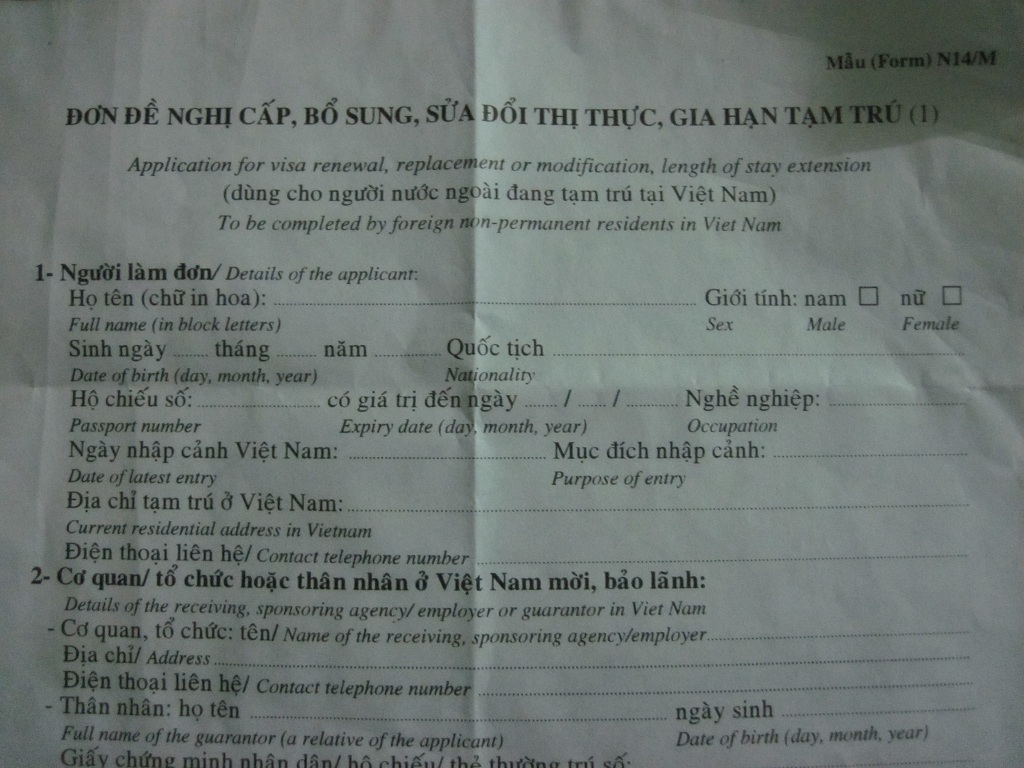 Mẫu (Form) N14/M
ĐƠN ĐỀ NGHỊ CẤP, BỔ SUNG, SỬA ĐỔI THỊ THỰC, GIA HẠN TẠM TRÚ (1)
Application for visa renewal, replacement or modification, length of stay extension
(dùng cho người nước ngoài đang tạm trú tại Việt Nam)
To be completed by foreign non-permanent residents in Viet Nam
1- Người làm đơn/ Details of the applicant:
Họ tên (chữ in hoa): ........ Giới tính: nam □ nữ □
Full name (in block letters) Sex Male Female
Sinh ngày ...... tháng ...... năm ........ Quốc tịch ........
Date of birth (day, month, year) Nationality
Hộ chiếu số: ........ có giá trị đến ngày ...... / ...... / ........ Nghề nghiệp: ........
Passport number Expiry date (day, month, year) Occupation
Ngày nhập cảnh Việt Nam: ........ Mục đích nhập cảnh: ........
Date of latest entry Purpose of entry
Địa chỉ tạm trú ở Việt Nam: ........
Current residential address in Vietnam
Điện thoại liên hệ/ Contact telephone number ........
2- Cơ quan/ tổ chức hoặc thân nhân ở Việt Nam mời, bảo lãnh:
Details of the receiving, sponsoring agency/ employer or guarantor in Viet Nam
- Cơ quan, tổ chức: tên/ Name of the receiving, sponsoring agency/employer ........
Địa chỉ/ Address ........
Điện thoại liên hệ/ Contact telephone number ........
- Thân nhân: họ tên ........ ngày sinh ........
Full name of the guarantor (a relative of the applicant) Date of birth (day, month, year)
Giấy chứng minh nhân dân/ hộ chiếu/ thẻ thường trú số: